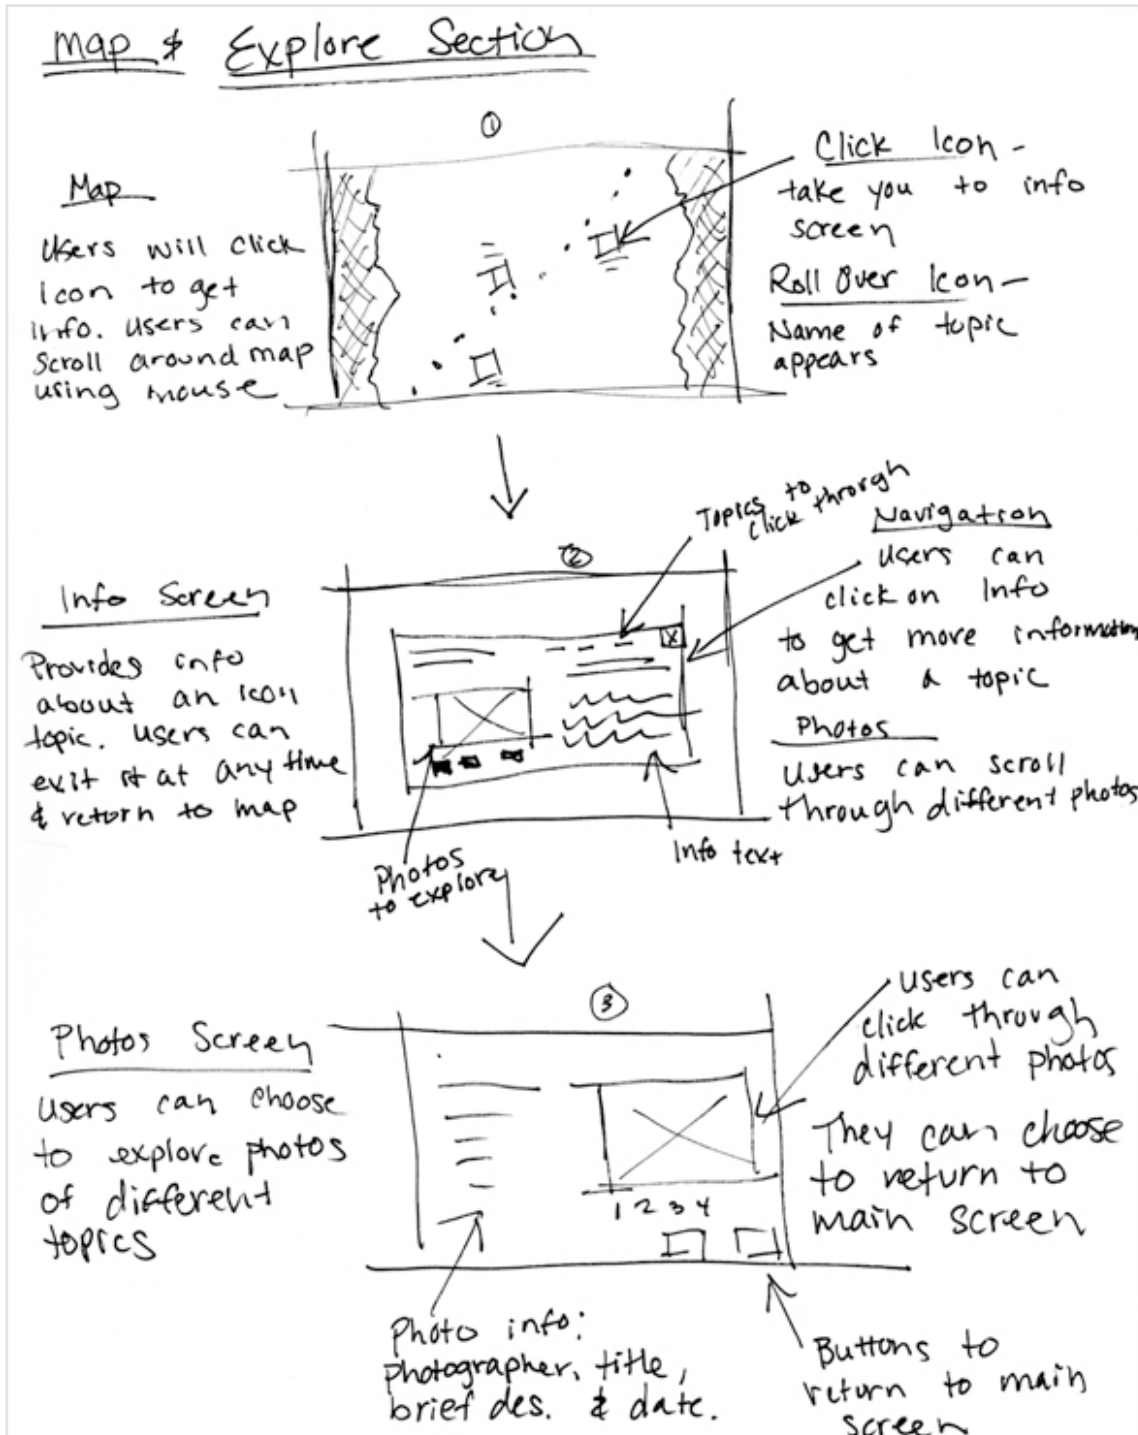 Map & Explore Section
①
Map
Users will click
Icon to get
Info. Users can
Scroll around map
using mouse
Click Icon -
take you to info
screen
Roll Over Icon -
Name of topic
appears
Topics to
click through
②
Info Screen
Provides info
about an icon
topic. Users can
exit it at any time
& return to map
X
Navigation
Users can
click on Info
to get more information
about a topic
Photos
Users can scroll
through different photos
Photos
to explore
Info text
③
Photos Screen
Users can choose
to explore photos
of different
topics
1 2 3 4
Users can
click through
different photos
They can choose
to return to
main screen
Photo info:
Photographer, title,
brief des. & date.
Buttons to
return to main
screen